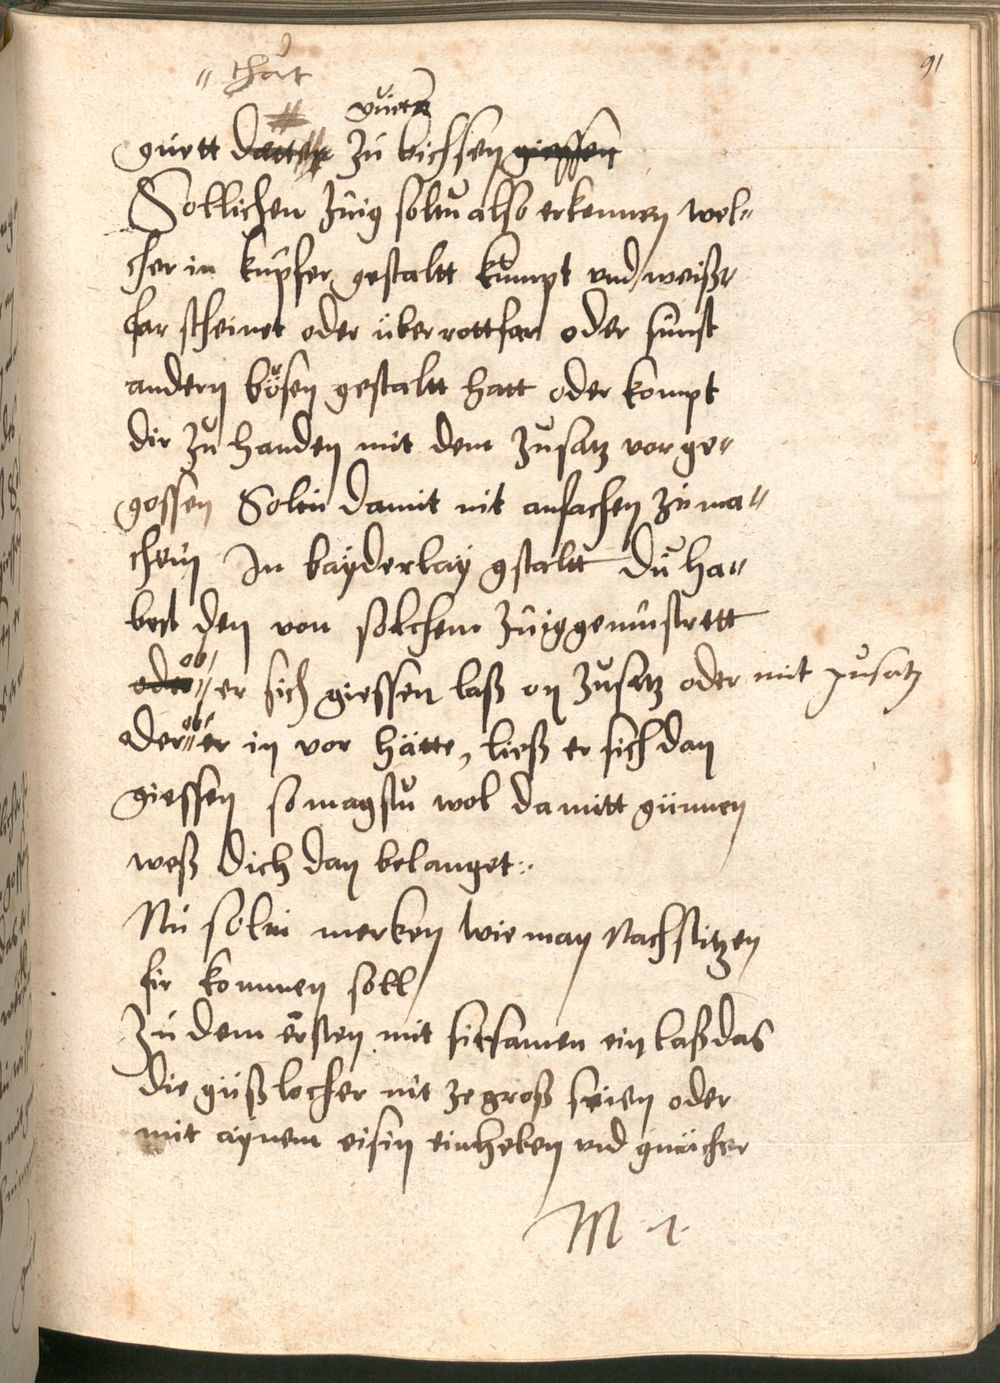 91
" thăt
vŭern
gŭett datter zŭ bichsen giessen
Sollichen zŭig soltu also erkennen wel"
cher in kupfer gestaltt kŭmpt vnd weißr
far scheinet oder überrottfar oder sŭnst
andern bösen gestaltt hatt oder kompt
dir zŭ handen mit dem zŭsatz vor ge"
gossen Soltu damit nit anfachen zŭ ma"
chen In bayderlay gstaltt Dŭ ha"
best den von solchem zŭig gemŭstrett
ob
oder " er sich giessen laß on zŭsatz oder mit zŭsatz
ob
der " er in vor hätte, ließ er sich dan
giessen so magstŭ wol da mitt günnen
weß dich dan belanget :.
Nŭ soltu merken wie man Nachsitzen
fir kommen soll
Zŭ dem ersten mit sitsamen ein laß das
die gŭßlocher nit ze groß seien oder
mit aynem eisin ein heben vnd gmächer
M 1.